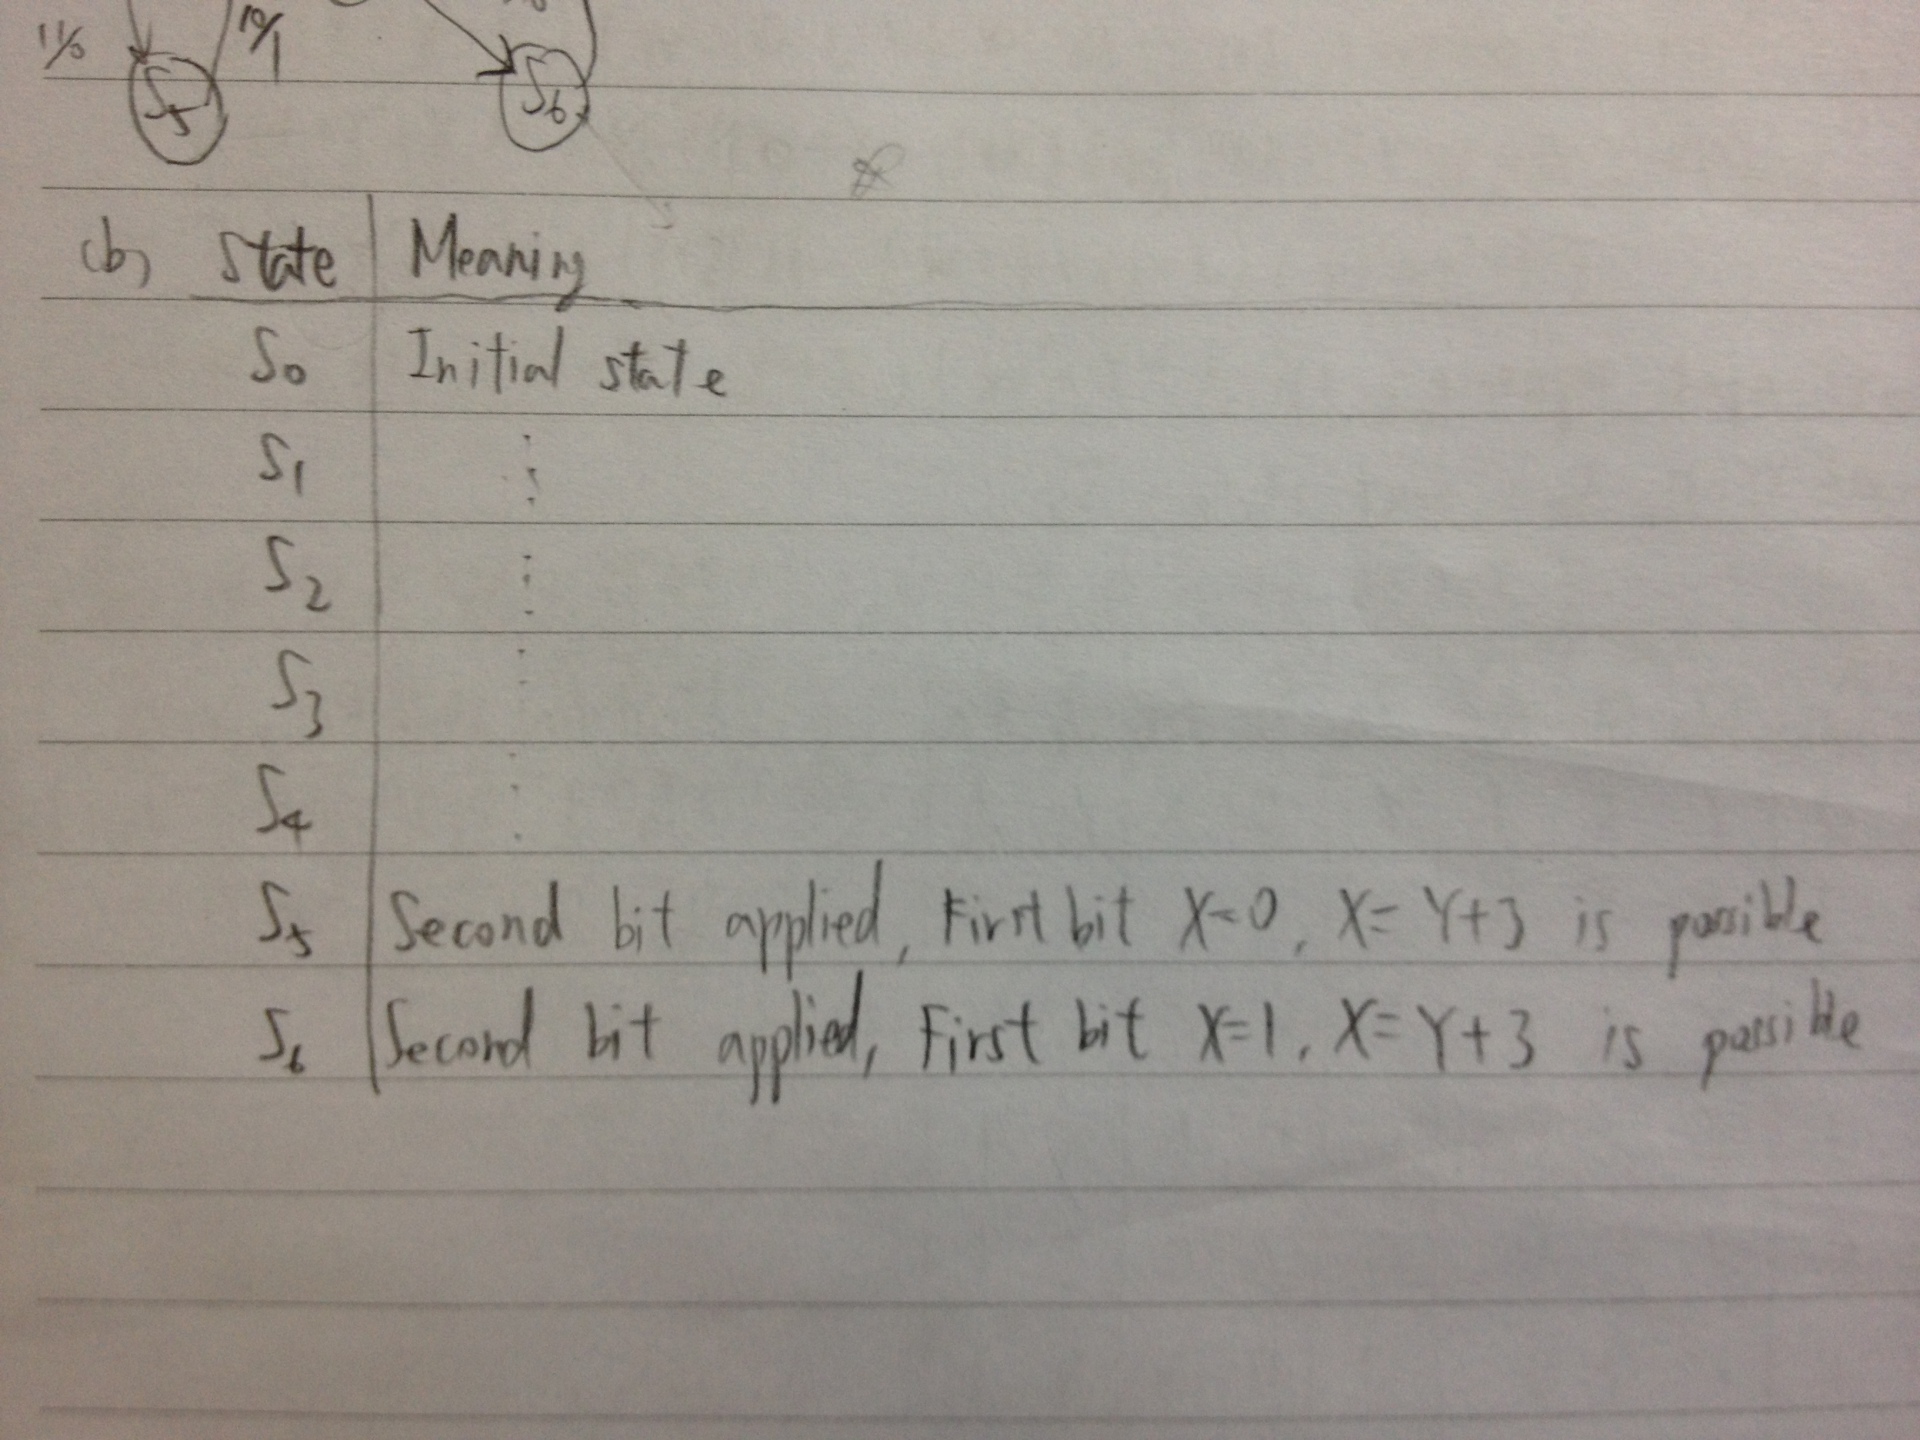 11/0 10/1
S5 S6
(b) State Meaning
S0 Initial state
S1 ⋮
S2 ⋮
S3 ⋮
S4 ⋮
S5 Second bit applied, First bit X=0, X=Y+3 is possible
S6 Second bit applied, First bit X=1, X=Y+3 is possible